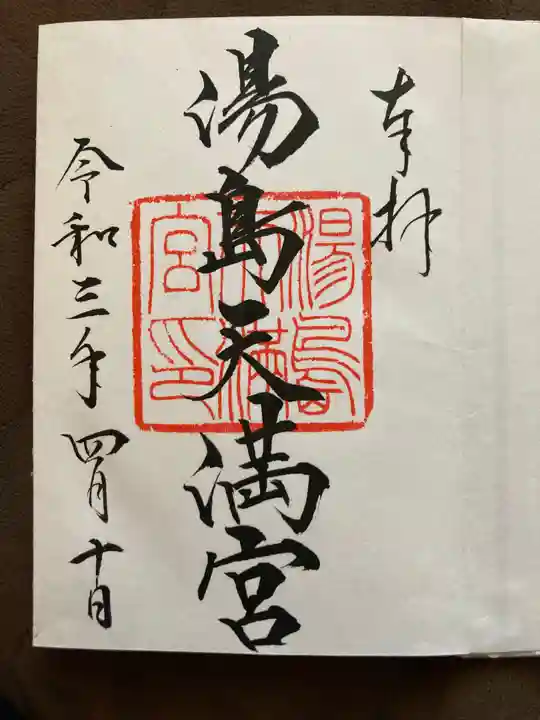 奉拝
湯島天満宮
湯島天満宮印
令和三年四月十日